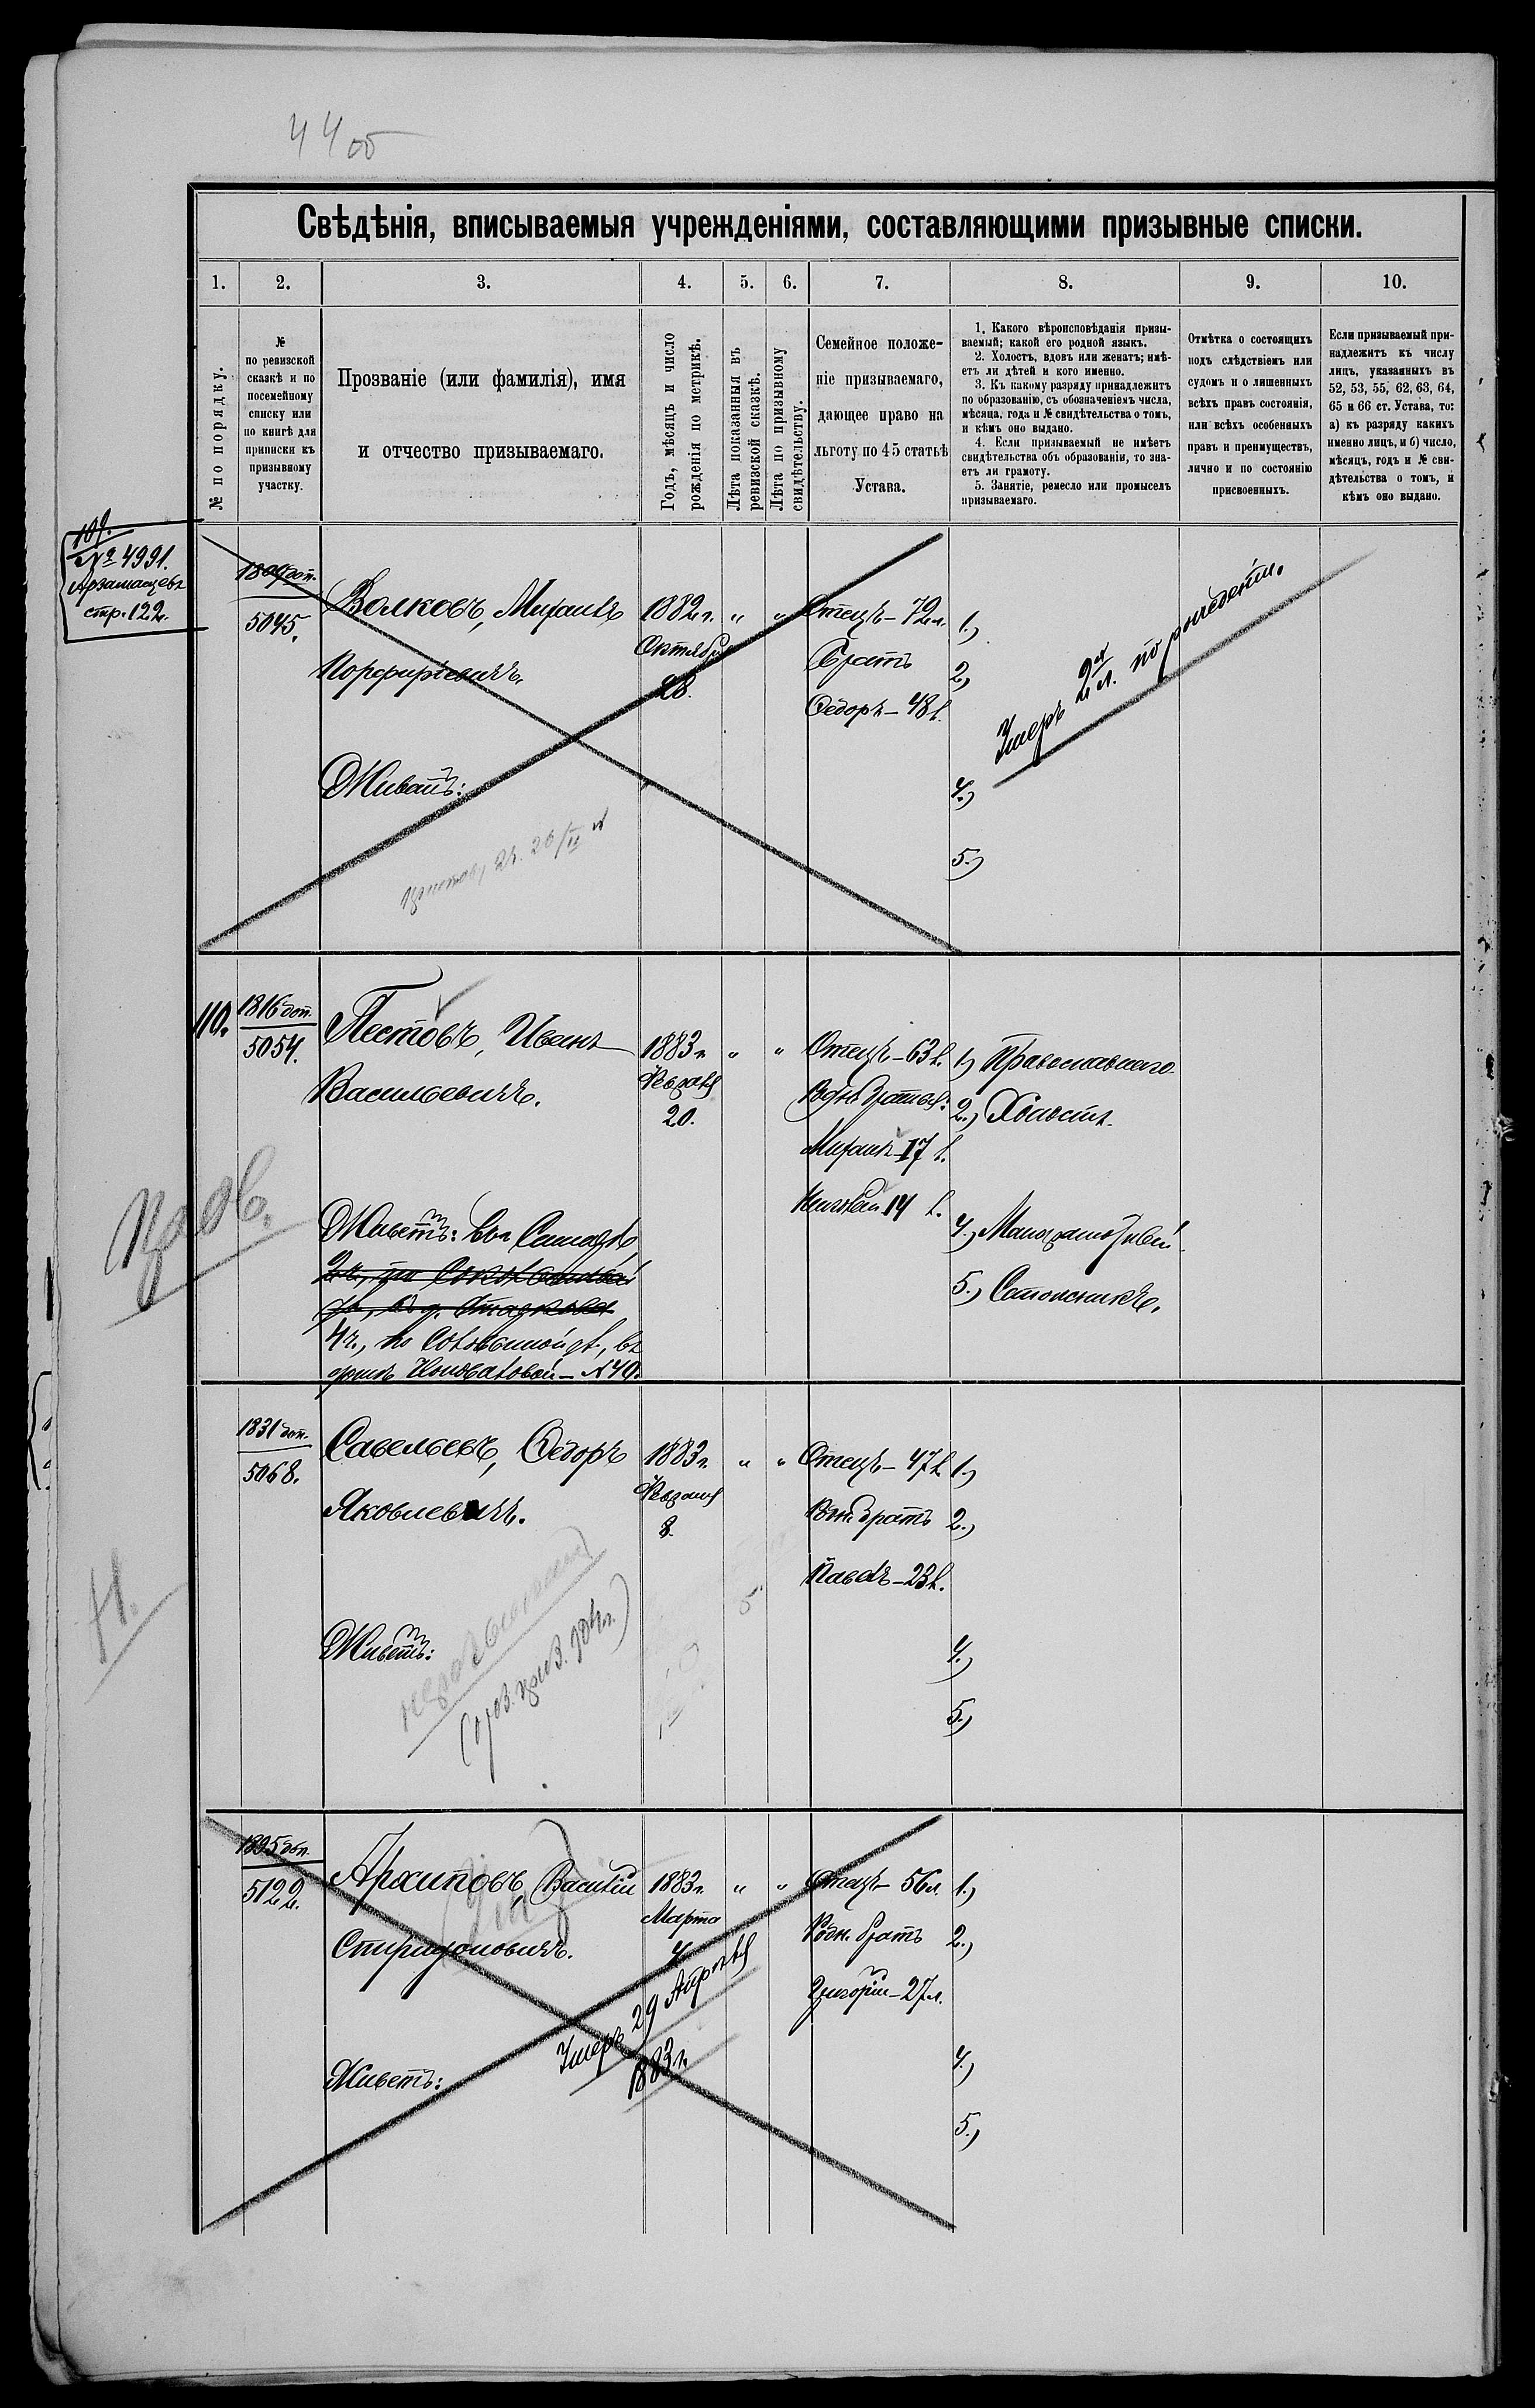 44 об
Свѣдѣнія, вписываемыя учрежденіями, составляющими призывные списки.
1. 2. 3. 4. 5. 6. 7. 8. 9. 10.
№ по порядку.
№
по ревизской
сказкѣ и по
посемейному
списку или
по книгѣ для
приписки къ
призывному
участку.
Прозваніе (или фамилія), имя
и отчество призываемаго.
Годъ, мѣсяцъ и число
рожденія по метрикѣ.
Лѣта показанныя въ
ревизской сказкѣ.
Лѣта по призывному
свидѣтельству.
Семейное положе-
ніе призываемаго,
дающее право на
льготу по 45 статьѣ
Устава.
1. Какого вѣроисповѣданія призы-
ваемый; какой его родной языкъ.
2. Холостъ, вдовъ или женатъ; имѣ-
етъ ли дѣтей и кого именно.
3. Къ какому разряду принадлежитъ
по образованію, съ обозначеніемъ числа,
мѣсяца, года и № свидѣтельства о томъ,
и кѣмъ оно выдано.
4. Если призываемый не имѣетъ
свидѣтельства объ образованіи, то зна-
етъ ли грамоту.
5. Занятіе, ремесло или промыселъ
призываемаго.
Отмѣтка о состоящихъ
подъ слѣдствіемъ или
судомъ и о лишенныхъ
всѣхъ правъ состоянія,
или всѣхъ особенныхъ
правъ и преимуществъ,
лично и по состоянію
присвоенныхъ.
Если призываемый при-
надлежитъ къ числу
лицъ, указанныхъ въ
52, 53, 55, 62, 63, 64,
65 и 66 ст. Устава, то:
а) къ разряду какихъ
именно лицъ, и б) число,
мѣсяцъ, годъ и № сви-
дѣтельства о томъ, и
кѣмъ оно выдано.
109.
№ 4991.
Арзамасцевъ
стр. 122.
1809 доп.
5045.
Волковъ, Михаилъ
Порфирьевичъ.
Живетъ:
1882 г.
Октября
28.
" "
Отецъ - 72 л.
Братъ
Ѳедоръ - 48 л.
1.)
2.)
4.)
5.)
Умеръ 2х л. по рожденіи.
110.
1816 доп.
5054.
Пестовъ, Иванъ
Васильевичъ.
Живетъ: въ г. Самарѣ
4 ч., по
домѣ - № 40.
1883 г.
Февраля
20.
" "
Отецъ - 63 л.
Родн. братья:
Михаилъ 17 л.
14 л.
1.) Православнаго.
2.) Холостъ.
4.) Малограмотный.
5.) Сапожникъ.
1831 доп.
5068.
Савельевъ, Ѳедоръ
Яковлевичъ.
Живетъ:
1883 г.
Февраля
8.
" "
Отецъ - 47 л.
Родн. братъ
Павелъ - 23 л.
1.)
2.)
4.)
5.)
Н.
5
1895 доп.
5122.
Архиповъ, Василій
Спиридоновичъ.
Живетъ:
1883 г.
Марта
4
" "
Отецъ - 56 л.
Родн. братъ
Григорій - 27 л.
1.)
2.)
4.)
5.)
Умеръ 29 Апрѣля
1883 г.